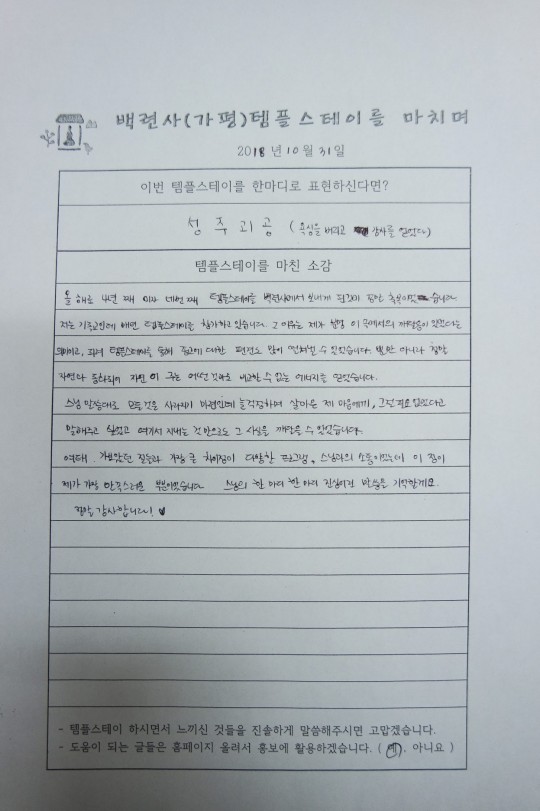 백련사(가평)템플스테이를 마치며
2018년 10월 31일
이번 템플스테이를 한마디로 표현하신다면?
성 주 괴 공 (욕심을 버리고 감사를 얻었다)
템플스테이를 마친 소감
올 해로 4년 째 이자 네번 째 템플스테이를 백련사에서 보내게 된것이 정말 축복이었습니다.
저는 기독교인데 매번 템플스테이를 참가하고 있습니다. 그 이유는 제가 방엄 이 곳에서의 깨달음이 있었다는
의미이고, 되려 템플스테이를 통해 종교에 대한 편견도 많이 떨쳐낼 수 있었습니다. 뿐만 아니라 정말
자연과 동화되어 자연이 주는 어떤 것과도 비교할 수 없는 에너지를 얻었습니다.
스님 말씀대로 모든 것은 사라지기 마련인데 늘 걱정하며 살아온 제 마음에게, 그럴 필요 없었다고
말해주고 싶었고 여기서 지내는 것 만으로도 그 사실을 깨달을 수 있었습니다.
여태 가보았던 절들과 가장 큰 차이점이 다양한 프로그램, 스님과의 소통이었는데 이 점이
제가 가장 만족스러운 부분이었습니다. 스님의 한 마디 한 마디 진심어린 말씀을 기억할게요.
정말 감사합니다!
- 템플스테이 하시면서 느끼신 것들을 진솔하게 말씀해주시면 고맙겠습니다.
- 도움이 되는 글들은 홈페이지 올려서 홍보에 활용하겠습니다. ( 예. 아니요 )